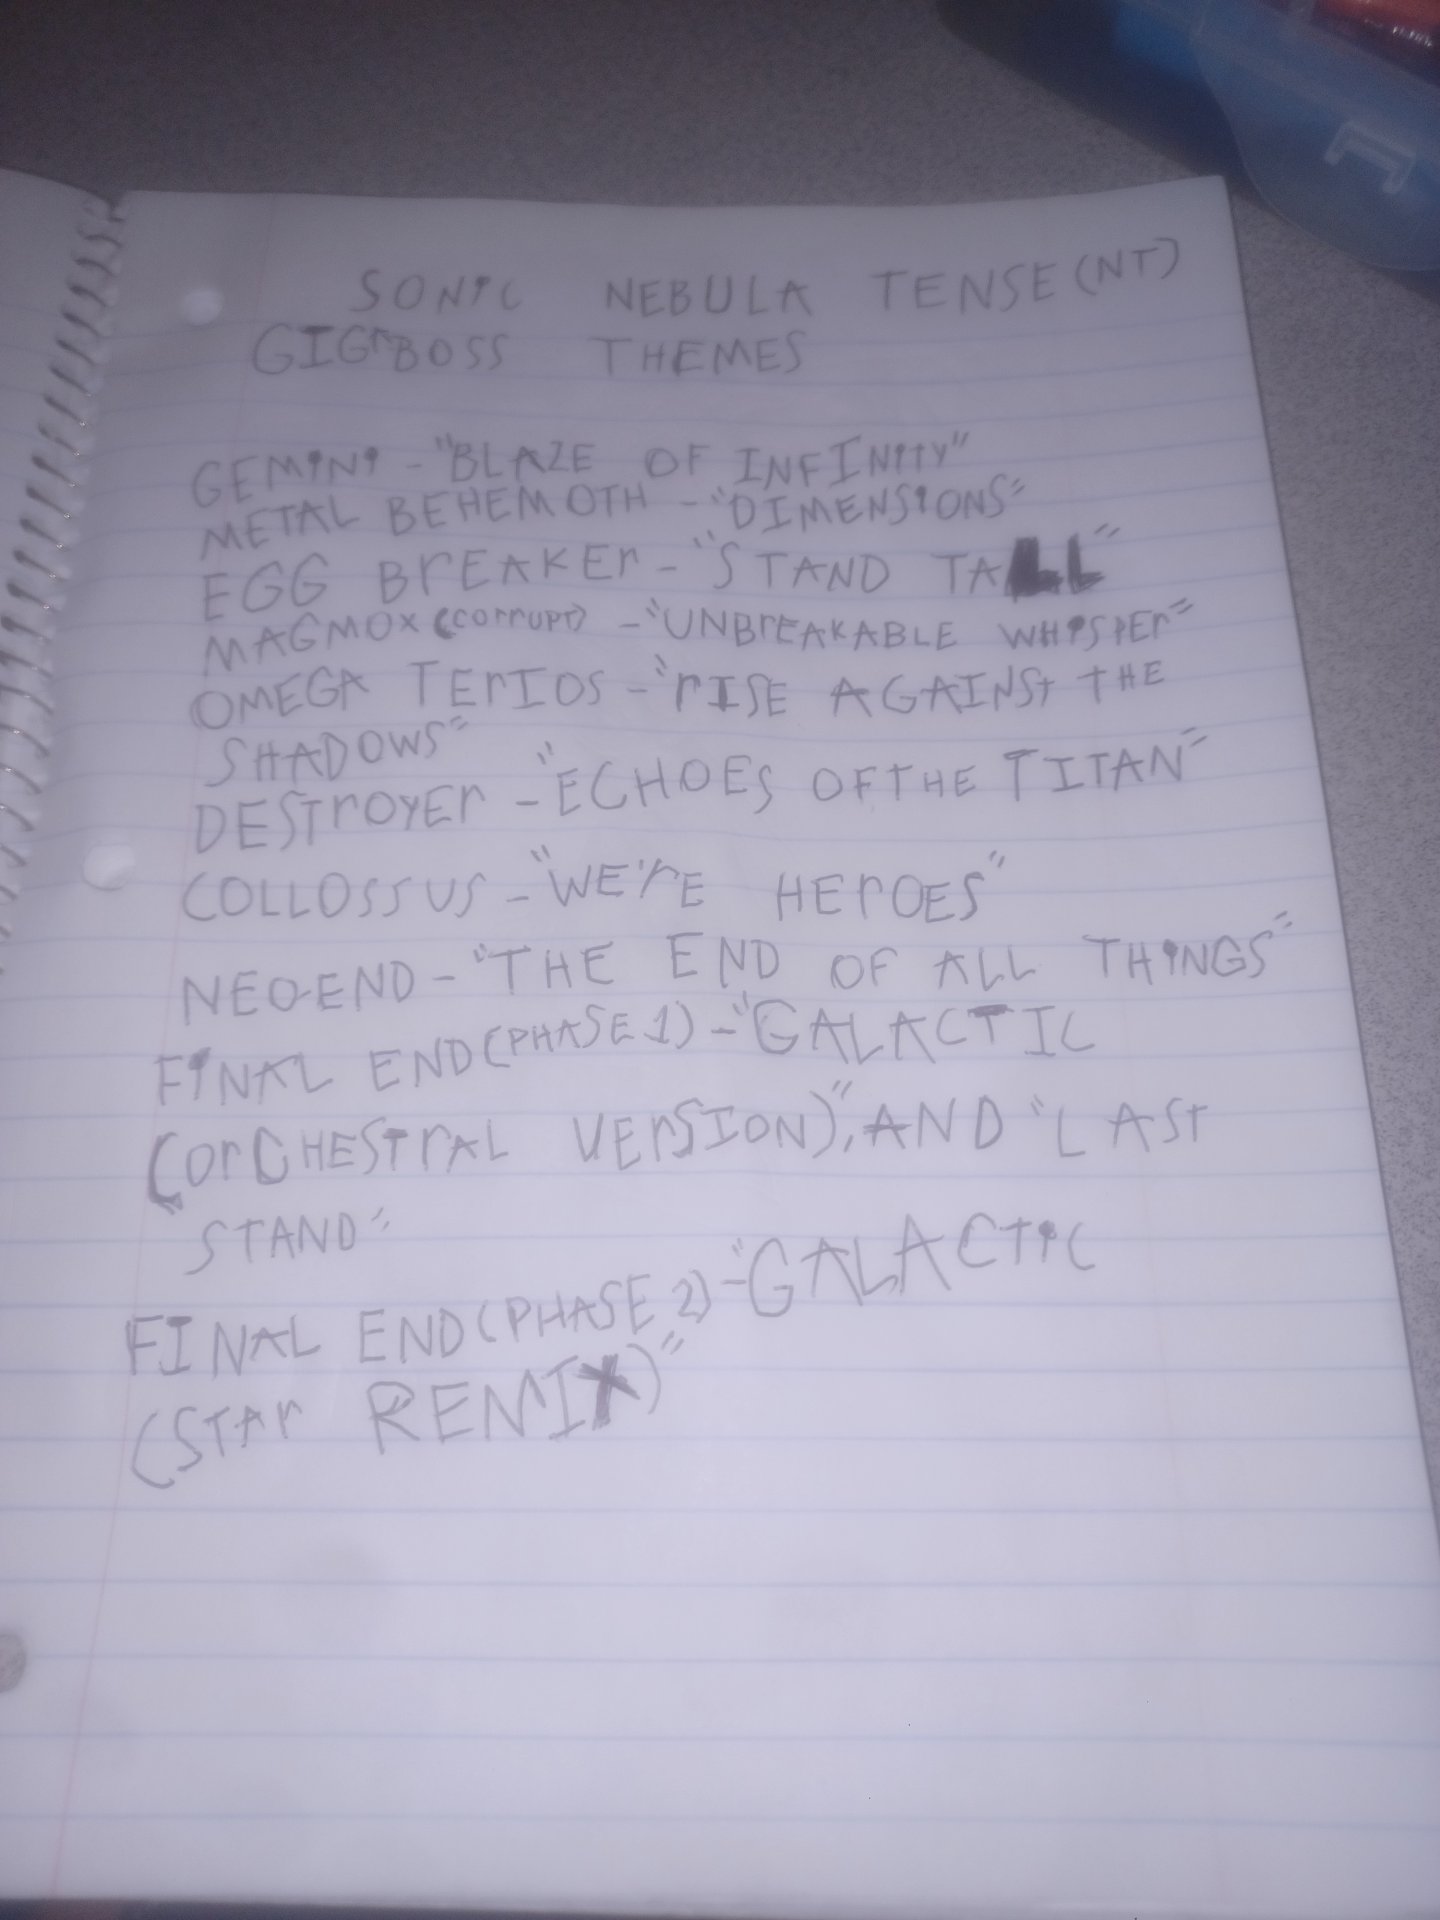 SONIC NEBULA TENSE (NT)
GIGABOSS THEMES
GEMINI - "BLAZE OF INFINITY"
METAL BEHEMOTH - "DIMENSIONS"
EGG BrEAKEr - "STAND TALL"
MAGMOX (corrupt) - "UNBrEAKABLE WHISPEr"
OMEGA TErIOS - "rISE AGAINSt THE
SHADOWS"
DEStrOYEr - "ECHOES OF THE TITAN"
COLLOSSUS - "WE'rE HErOES"
NEO-END - "THE END OF ALL THINGS"
FINAL END (PHASE 1) - "GALACTIC
(OrCHESTrAL VErSION)", AND "LAST
STAND"
FINAL END (PHASE 2) - "GALACTIC
(STAr REMIX)"